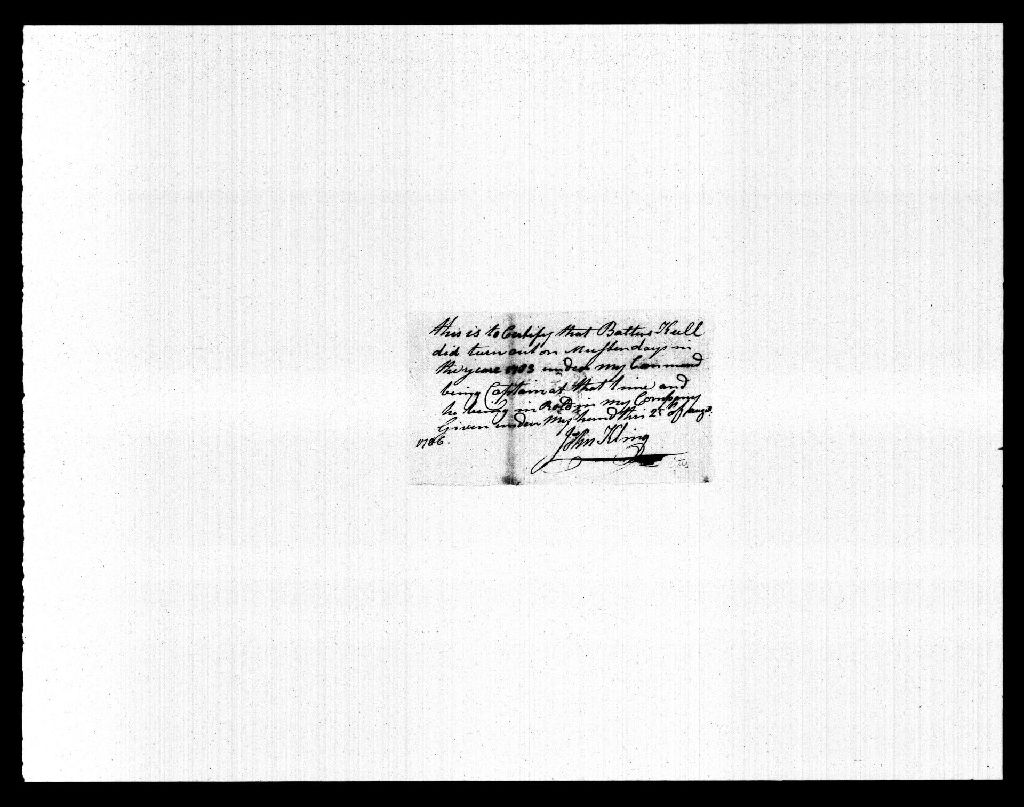 this is to Certify that Baltus Kull
did turn out on Muster days in
the year 1783 under my Command
being Captain at that time and
he being in Rold in my Company
Given under my hand this 2d of Augt
1786.
John Kling